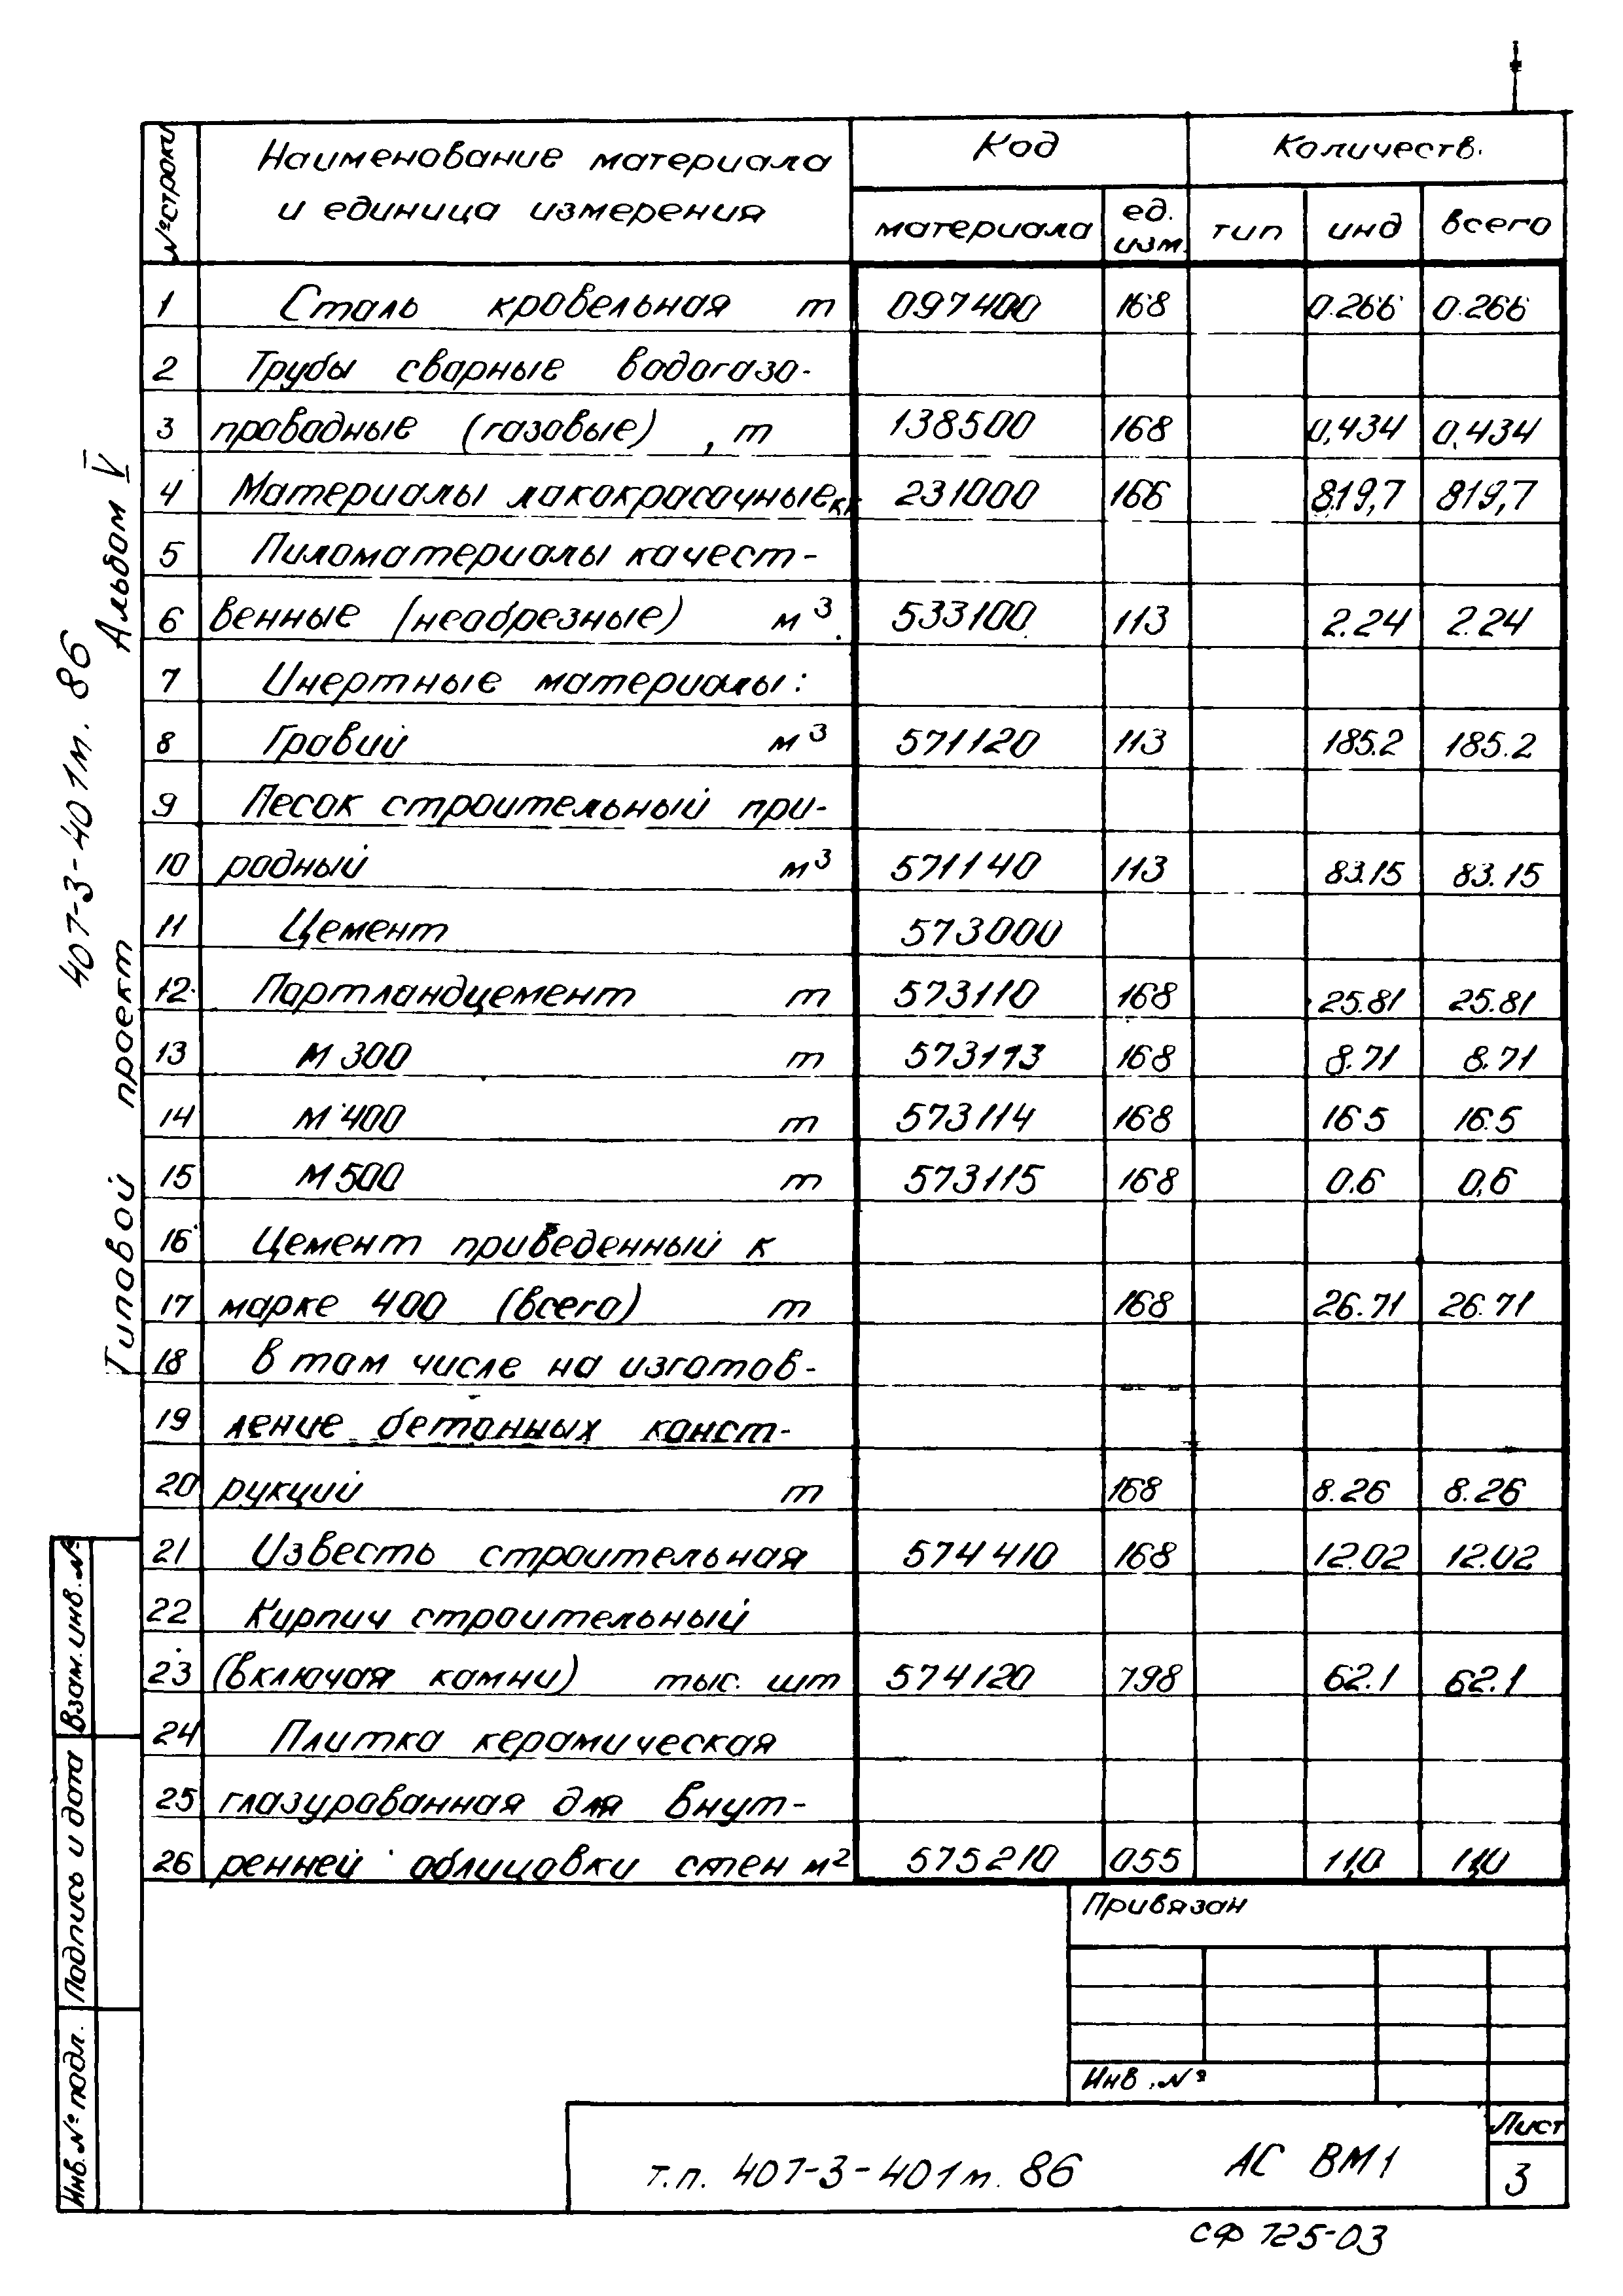 Типовой проект 407-3-401м.86 Альбом V
№ строки | Наименование материала и единица измерения | Код | Количеств.
материала | ед. изм. | тип | инд | всего
1 Сталь кровельная т 097400 168 0.266 0.266
2 Трубы сварные водогазо-
3 проводные (газовые) , т 138500 168 0,434 0,434
4 Материалы лакокрасочные кг 231000 166 819,7 819,7
5 Пиломатериалы качест-
6 венные (необрезные) м³ 533100 113 2.24 2.24
7 Инертные материалы:
8 Гравий м³ 571120 113 185.2 185.2
9 Песок строительный при-
10 родный м³ 571140 113 83.15 83.15
11 Цемент 573000
12 Портландцемент т 573110 168 25.81 25.81
13 М 300 т 573113 168 8.71 8.71
14 М 400 т 573114 168 16 5 16.5
15 М 500 т 573115 168 0.6 0,6
16 Цемент приведенный к
17 марке 400 (всего) т 168 26.71 26.71
18 в том числе на изготов-
19 ление бетонных конст-
20 рукций т 168 8.26 8.26
21 Известь строительная 574410 168 12.02 12.02
22 Кирпич строительный
23 (включая камни) тыс. шт 574120 798 62.1 62.1
24 Плитка керамическая
25 глазурованная для внут-
26 ренней облицовки стен м² 575210 055 11,0 11,0
Взам. инв. №
Подпись и дата
Инв. № подл.
Привязан
Инв. №
т.п. 407-3-401м. 86 АС ВМ1
Лист
3
СФ 725-03